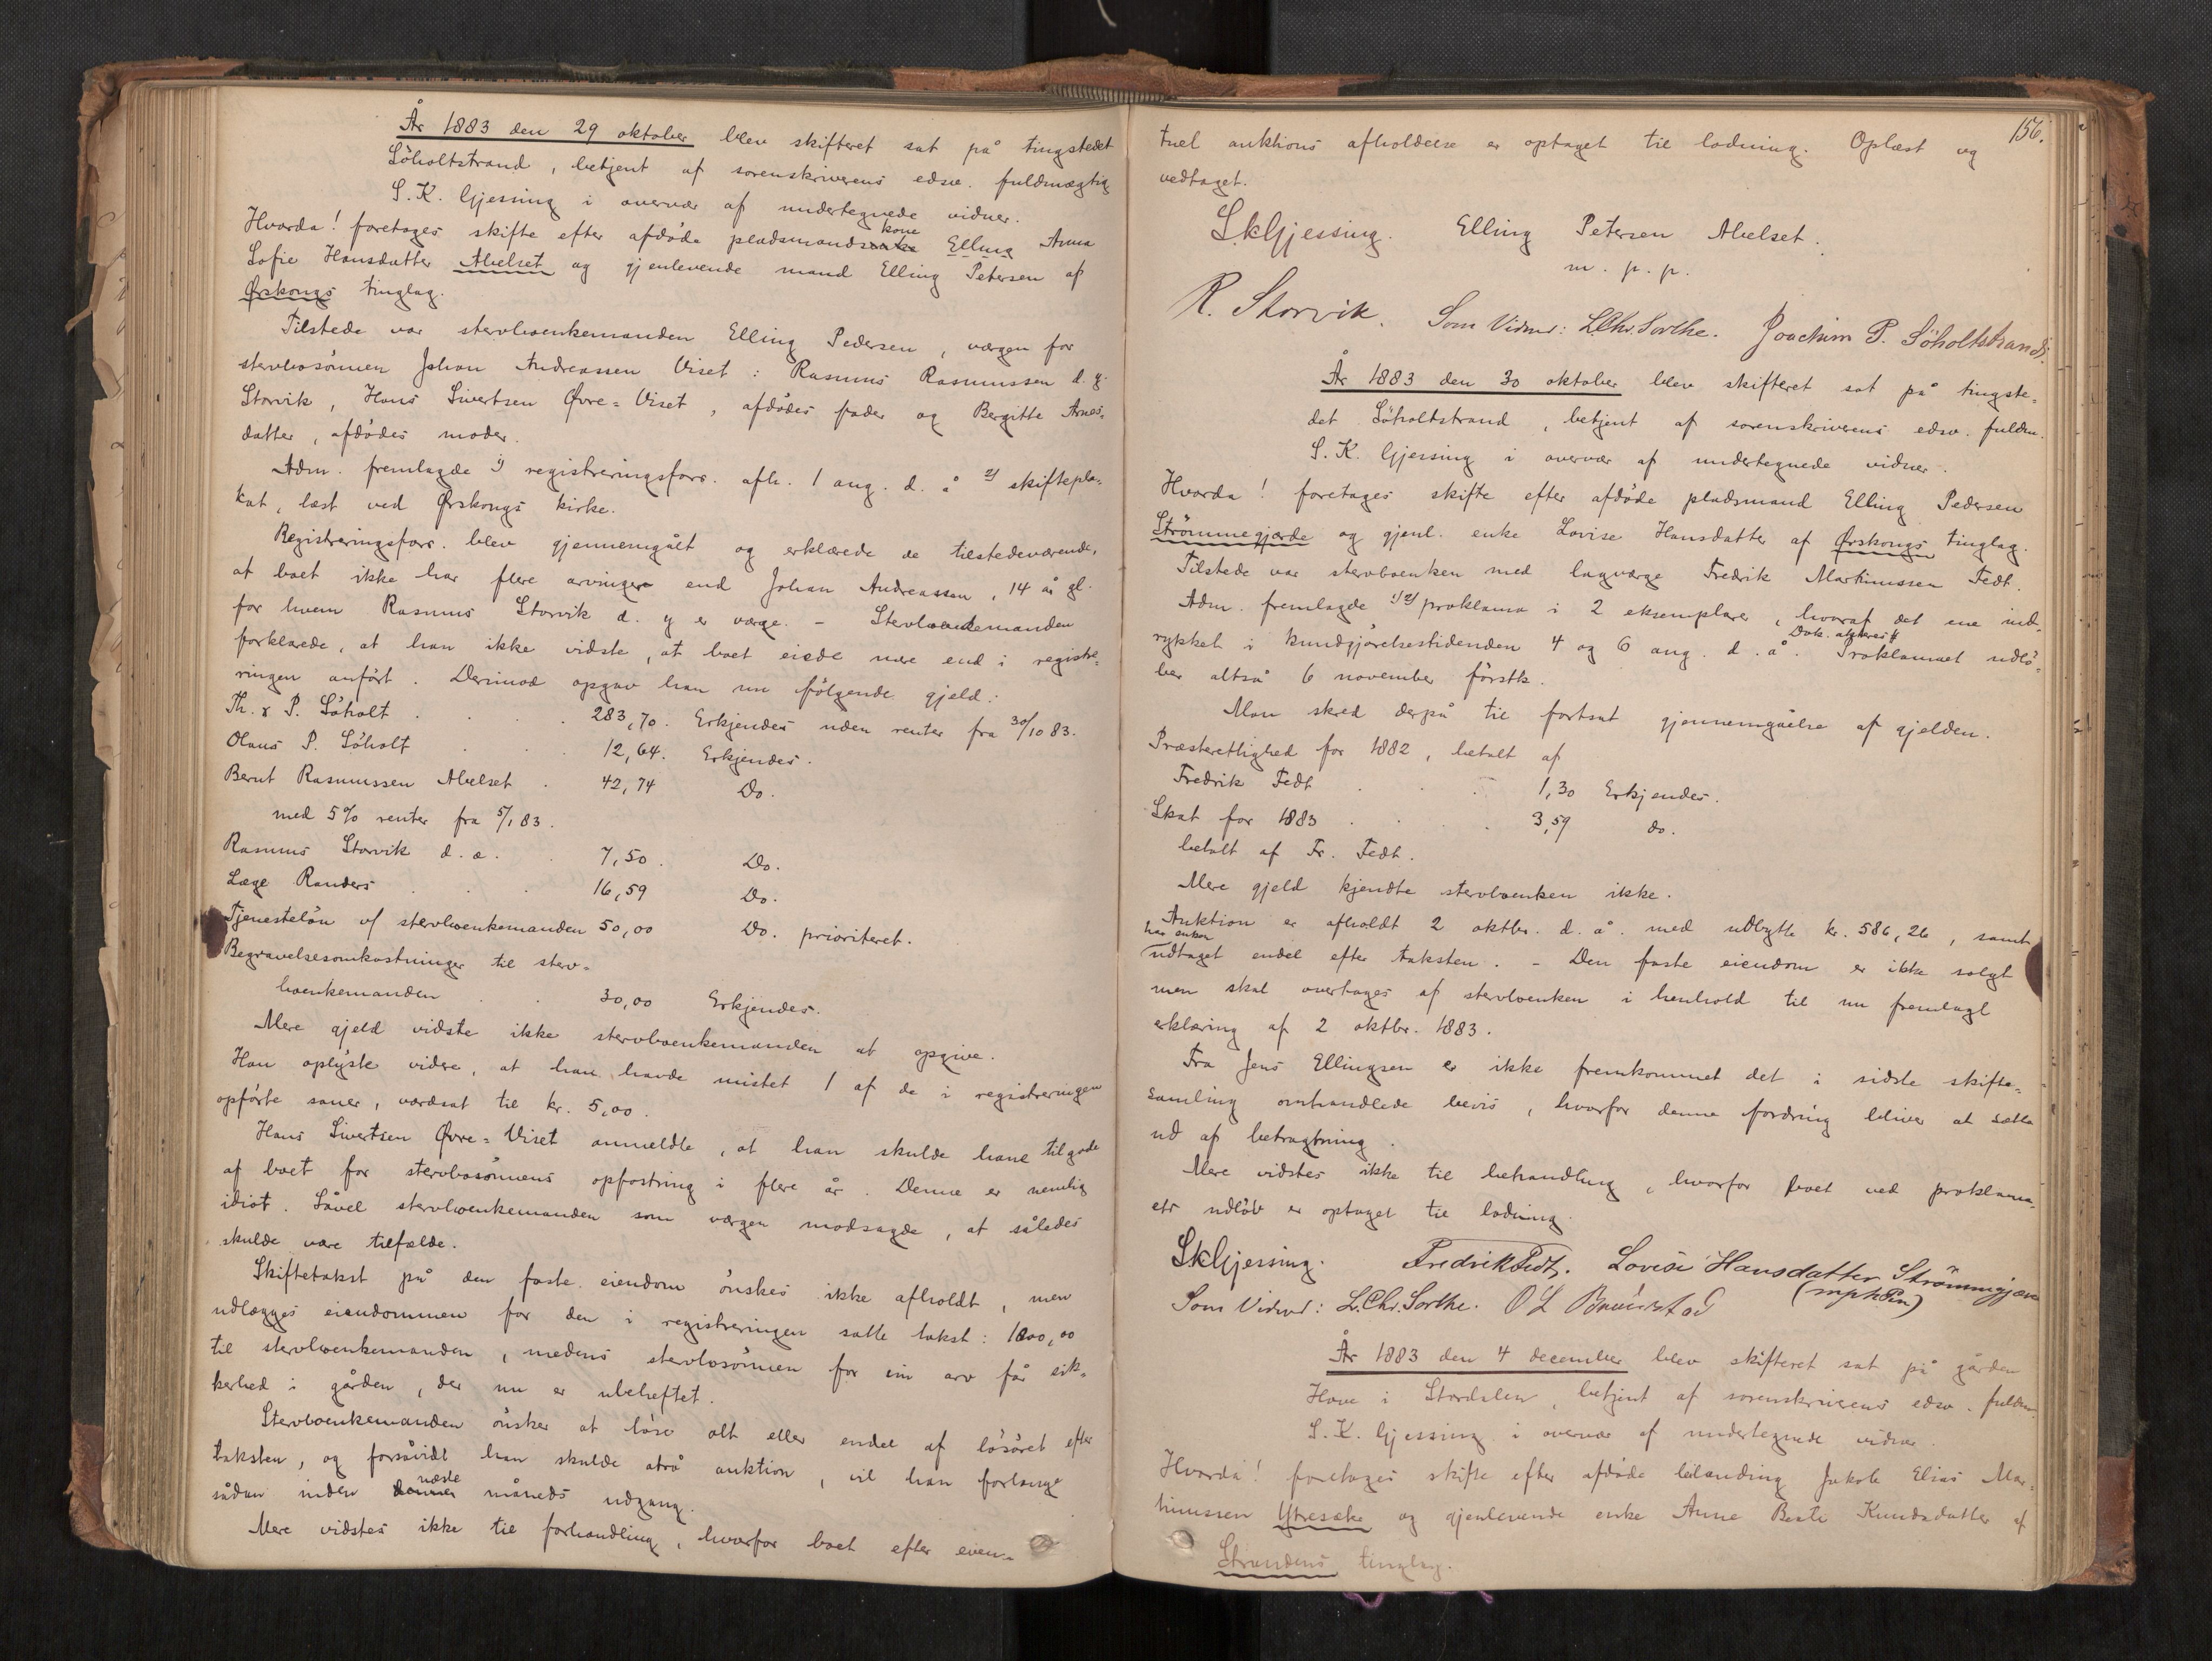 År 1883 den 29 oktober blev skifteret sat på tingstedet
Söholtstrand, betjent af sorenskriverens edsv. fuldmægtig
S. K. Gjessing i overvær af undertegnede vidner.
Hvorda! foretoges skifte efter afdöde pladsmandsenke kone Elling Anna
Sofie Hansdatter Abelset og gjenlevende mand Elling Petersen af
Ørskougs tinglag.
Tilstede var stervboenkemanden Elling Pedersen, værgen for
stervbosönnen Johan Andreassen Viset: Rasmus Rasmussen d. y.
Storvik, Hans Sivertsen Øvre=Viset, afdödes fader og Bergitte Arnes=
datter, afdödes moder.
Adm. fremlagde 1) registreringsforr. afh. 1 aug. d. å 2) skiftepla=
kat, læst ved Ørskougs kirke.
Registreringsforr. blev gjennemgået og erklærede de tilstedeværende,
at boet ikke har flere arvinger end Johan Andreassen, 14 år gl.
for hvem Rasmus Storvik d. y er værge. – Stervboenkemanden
forklarede, at han ikke vidste, at boet eiede mere end i registre=
ringen anfört. Derimod opgav han nu fölgende gjeld:
Th. & P. Söholt . . . . 283,70. Erkjendes uden renter fra 30/10 83.
Olaus P. Söholt . . . 12,64. Erkjendes.
Bernt Rasmussen Abelset . 42,74 Do.
med 5% renter fra 5/1 83.
Rasmus Storvik d. æ. . 7,50. Do.
Læge Randers . . . 16,59 Do.
Tjenestelön af stervboenkemanden 50,00 Do. prioriteret.
Begravelsesomkostninger til sterv=
boenkemanden . . 30,00 Erkjendes.
Mere gjeld vidste ikke stervboenkemanden at opgive.
Han oplyste videre, at han havde mistet 1 af de i registreringen
opförte sauer, værdsat til kr. 5,00.
Hans Sivertsen Øvre=Viset anmeldte, at han skulde have tilgode
af boet for stervbosönnens opfostring i flere år. Denne er nemlig
idiot. Såvel stervboenkemanden som værgen modsagde, at således
skulde være tilfælde.
Skiftetakst på den faste eiendom önskes ikke afholdt, men
udlægges eiendommen for den i registreringen satte takst: 1800,00
til stervboenkemanden, medens stervbosönnen for sin arv får sik=
kerhed i gården, der nu er ubeheftet.
Stervboenkemanden önsker at löse alt eller endel af lösöret efter
taksten, og forsåvidt han skulde atrå auktion, vil han forlange
sådan inden denne næste måneds udgang.
Mere vidstes ikke til forhandling, hvorfor boet efter even=
156.
tuel auktions afholdelse er optaget til lodning. Oplæst og
vedtaget.
SkGjessing. Elling Petersen Abelset.
m. p. p.
R. Storvik. Som Vidner: L.Chr. Sorthe. Joachim P. Söholtstrand.
År 1883 den 30 oktober blev skifteret sat på tingste=
det Söholtstrand, betjent af sorenskriverens edsv. fuldm.
S. K. Gjessing i overvær af undertegnede vidner.
Hvorda! foretoges skifte efter afdöde pladsmand Elling Pedersen
Strömmegjærde og gjenl. enke Lovise Hansdatter af Ørskougs tinglag.
Tilstede var stervboenken med lagværge Fredrik Martinussen Fedt.
Adm. fremlagde 1) 2) proklama i 2 eksemplarer, hvoraf det ene ind=
rykket i kundgjörelsestidenden 4 og 6 aug. d. å. Dok. akteres. Proklamaet udlö=
ber altså 6 november förstk.
Man skred derpå til fortsat gjennemgåelse af gjelden.
Præsterettighed for 1882, betalt af
Fredrik Fedt . . . 1,30 Erkjendes.
Skat for 1883 . . . . 3,59 do.
betalt af Fr. Fedt.
Mere gjeld kjendte stervboenken ikke.
Auktion er afholdt 2 oktbr. d. å. med udbytte kr. 586,26, samt
har enken udtaget endel efter taksten. – Den faste eiendom er ikke solgt
men skal overtages af stervboenken i henhold til nu fremlagt
erklæring af 2 oktbr. 1883.
Fra Jens Ellingsen er ikke fremkommet det i sidste skifte=
samling omhandlede bevis, hvorfor denne fordring bliver at sætte
ud af betragtning.
Mere vidstes ikke til behandling, hvorfor boet ved proklama=
ets udlöb er optaget til lodning.
SkGjessing. Fredrik Fedt. Lovise Hansdatter Strömmgjære
(mphPen)
Som Vidner: L.Chr. Sorthe. O L Brauestad
År 1883 den 4 december blev skifteret sat på gården
Hove i Stordalen, betjent af sorenskriverens edsv. fuldm.
S. K. Gjessing i overvær af undertegnede vidner.
Hvorda! foretoges skifte efter afdöde leilænding Jakob Elias Mar=
tinussen Ytresæke og gjenlevende enke Anne Berte Knudsdatter af
Strandens tinglag.